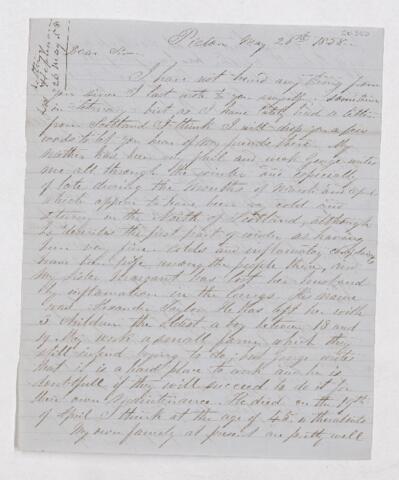 Pictou May 26th 1858.
Dear Sir
I have not heard any thing from
you since I last wrote to you myself sometime
in February but as I have lately had a letter
from Scotland I think I will drop you a few
words to let you hear of my friends there. My
mother has been very frail and weak George writes
me all through the winter and especially
of late during the months of March and April
which appear to have been very cold and
stormy in the North of Scotland, although
he describes the first part of winter as having
been very fine colds and inflamatory complaints
have been rife among the people there, and
My Sister Margaret has lost her husband
by inflamation in the lungs. His name
was Alexander Taylor. He has left her with
3 children the Eldest a boy between 18 and
19. They work a small farm which they
still intend trying to do; but George writes
that it is a hard place to work and he is
doubtfull if they will succeed to do it for
their own maintenance. He died on the 19th
of April I think at the age of 45 or thereabouts
My own family at present are pretty well